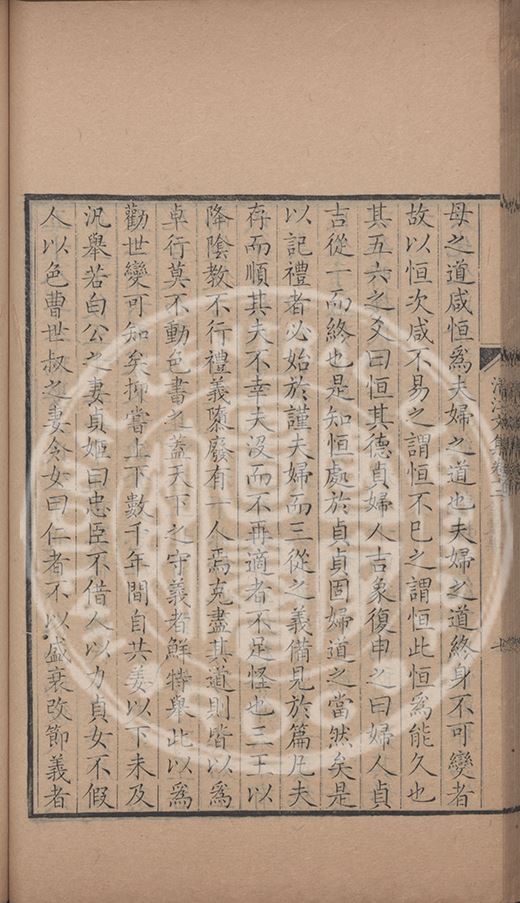 母之道咸恒爲夫婦之道也夫婦之道終身不可變者
故以恒次咸不易之謂恒不已之謂恒此恒爲能久也
其五六之爻曰恒其德貞婦人吉象復申之曰婦人貞
吉從一而終也是知恒處於貞貞固婦道之當然矣是
以記禮者必始於謹夫婦而三從之義備見於篇凡夫
存而順其夫不幸夫沒而不再適者不足怪也三王以
降陰教不行禮義隳廢有一人焉克盡其道則皆以爲
卓行莫不動色書之蓋天下之守義者鮮特舉此以爲
勸世變可知矣抑嘗上下數千年間自共姜以下未及
汎舉若白公之妻貞姬曰忠臣不借人以力貞女不假
人以色曹世叔之妻令女曰仁者不以盛衰改節義者